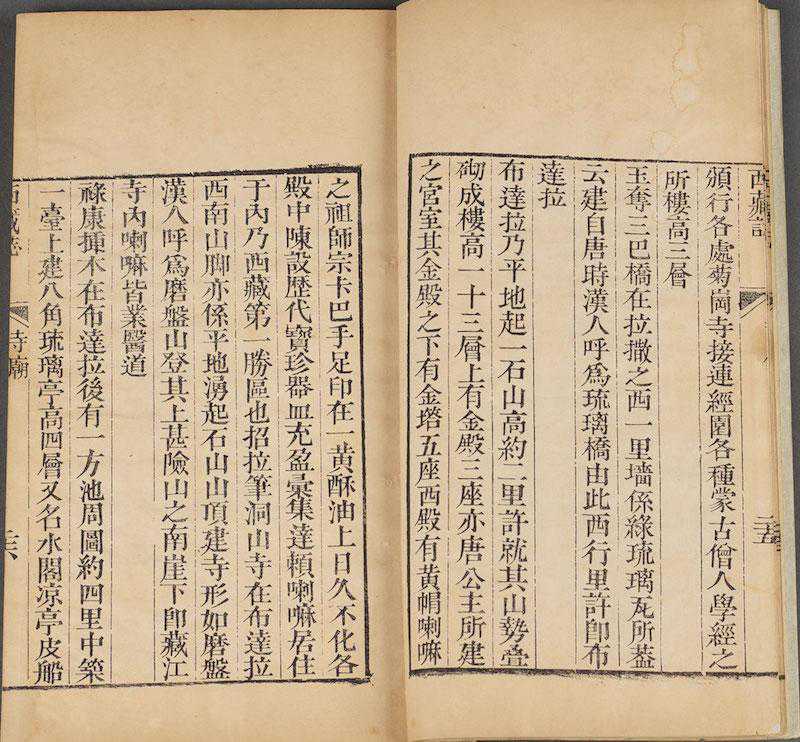 西藏志
二五
頒行各處菊崗寺接連經園各種蒙古僧人學經之
所樓高三層
玉奪三巴橋在拉撒之西一里墻係綠琉璃瓦所葢
云建自唐時漢人呼爲琉璃橋由此西行里許卽布
達拉
布達拉乃平地起一石山高約二里許就其山勢疊
砌成樓高一十三層上有金殿三座亦唐公主所建
之官室其金殿之下有金塔五座西殿有黄帽喇嘛
之祖師宗卡巴手足印在一黄酥油上日久不化各
殿中陳設歷代寶珍器皿充盈彙集達頼喇嘛居住
于内乃西藏第一勝區也招拉筆洞山寺在布達拉
西南山脚亦係平地湧起石山山頂建寺形如磨盤
漢人呼爲磨盤山登其上甚險山之南崖下卽藏江
寺内喇嘛皆業醫道
祿康揷木在布達拉後有一方池周圍約四里中築
一臺上建八角琉璃亭高四層又名水閣凉亭皮船
西藏志
寺廟